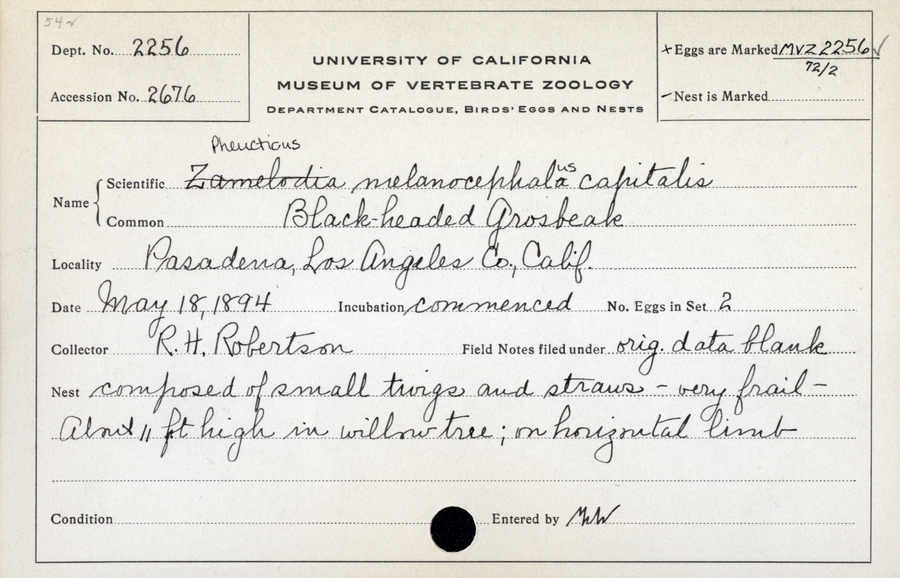 54
Dept. No. 2256
Accession No. 2676
UNIVERSITY OF CALIFORNIA
MUSEUM OF VERTEBRATE ZOOLOGY
DEPARTMENT CATALOGUE, BIRDS' EGGS AND NESTS
+ Eggs are Marked MVZ 2256 ✓
72/2
– Nest is Marked
Pheucticus
Name { Scientific Zamelodia melanocephala us capitalis
Common Black-headed Grosbeak
Locality Pasadena, Los Angeles Co., Calif.
Date May 18, 1894 Incubation commenced No. Eggs in Set 2
Collector R. H. Robertson Field Notes filed under orig. data blank
Nest composed of small twigs and straws – very frail –
About 11 ft high in willow tree; on horizontal limb
Condition Entered by